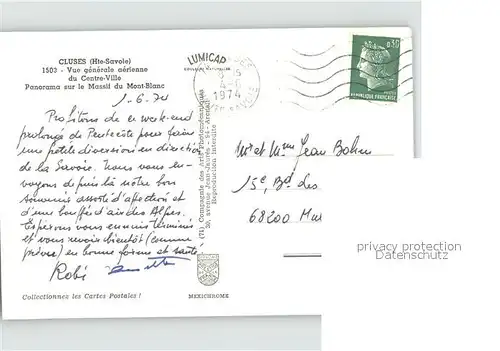 CLUSES (Hte-Savoie)
1503 - Vue générale aérienne
du Centre-Ville
Panorama sur le Massif du Mont-Blanc
LUMICAP
1974
0,30
REPUBLIQUE FRANÇAISE
1-6-74
Profitons de ce week-end
prolongé de Pentecôte pour faire
une petite diversion en direction
de la Savoie. Nous vous en-
voyons depuis là notre bon
souvenir assorti d'affection et
d'une bouffée d'air des Alpes.
Espérons vous en
et vous revoir bientôt (comme
prévu) en bonne forme et santé
Robi
(71) Compagnie des Arts Photomécaniques
20, avenue Jean-Jaurès - 94 - Arcueil
Reproduction interdite
Mr et Mme Jean Bohn
15c, Bd des
68200 Mu
privacy protection
Datenschutz
Collectionnez les Cartes Postales !
MEXICHROME